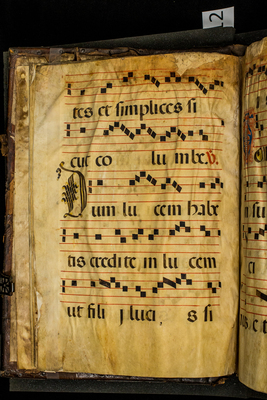 12
tes et simplices si
cut co lu mbe. V.
Dum lu cem habe
tis credite in lu cem
ut fili j luci, s si